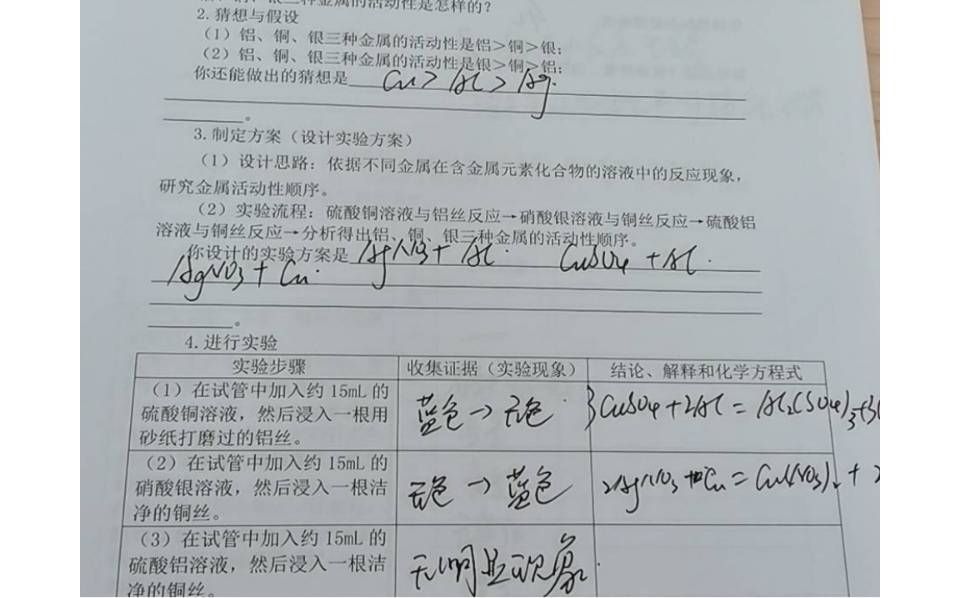 三种金属的活动性是怎样的？
2. 猜想与假设
（1）铝、铜、银三种金属的活动性是铝＞铜＞银；
（2）铝、铜、银三种金属的活动性是银＞铜＞铝；
你还能做出的猜想是 Cu > Al > Ag.
。
3. 制定方案（设计实验方案）
（1）设计思路：依据不同金属在含金属元素化合物的溶液中的反应现象，
研究金属活动性顺序。
（2）实验流程：硫酸铜溶液与铝丝反应→硝酸银溶液与铜丝反应→硫酸铝
溶液与铜丝反应→分析得出铝、铜、银三种金属的活动性顺序。
你设计的实验方案是 AgNO3 + Al. CuSO4 + Al.
AgNO3 + Cu.
。
4. 进行实验
实验步骤 收集证据（实验现象） 结论、解释和化学方程式
（1）在试管中加入约 15mL 的
硫酸铜溶液，然后浸入一根用
砂纸打磨过的铝丝。
蓝色 → 无色.
3CuSO4 + 2Al = Al2(SO4)3 + 3
（2）在试管中加入约 15mL 的
硝酸银溶液，然后浸入一根洁
净的铜丝。
无色 → 蓝色
2AgNO3 + Cu = Cu(NO3)2 + 2
（3）在试管中加入约 15mL 的
硫酸铝溶液，然后浸入一根洁
净的铜丝。
无明显现象.